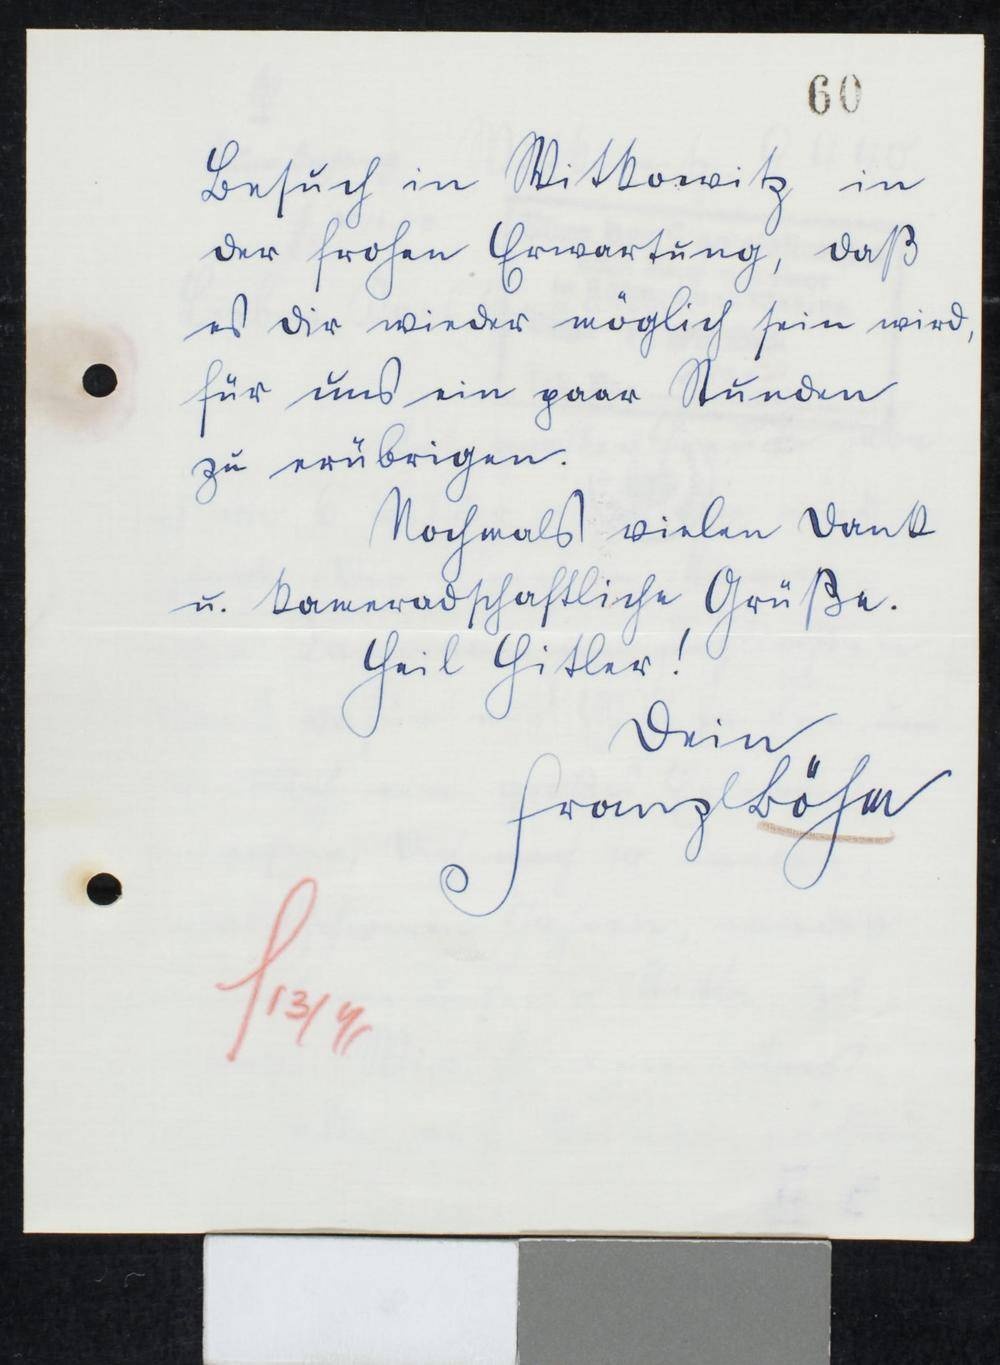 60
Besuch in Witkowitz in
der frohen Erwartung, daß
es dir wieder möglich sein wird,
für uns ein paar Stunden
zu erübrigen.
Nochmals vielen Dank
u. kameradschaftliche Grüße.
Heil Hitler!
Dein
Franzl Böhm
13/4